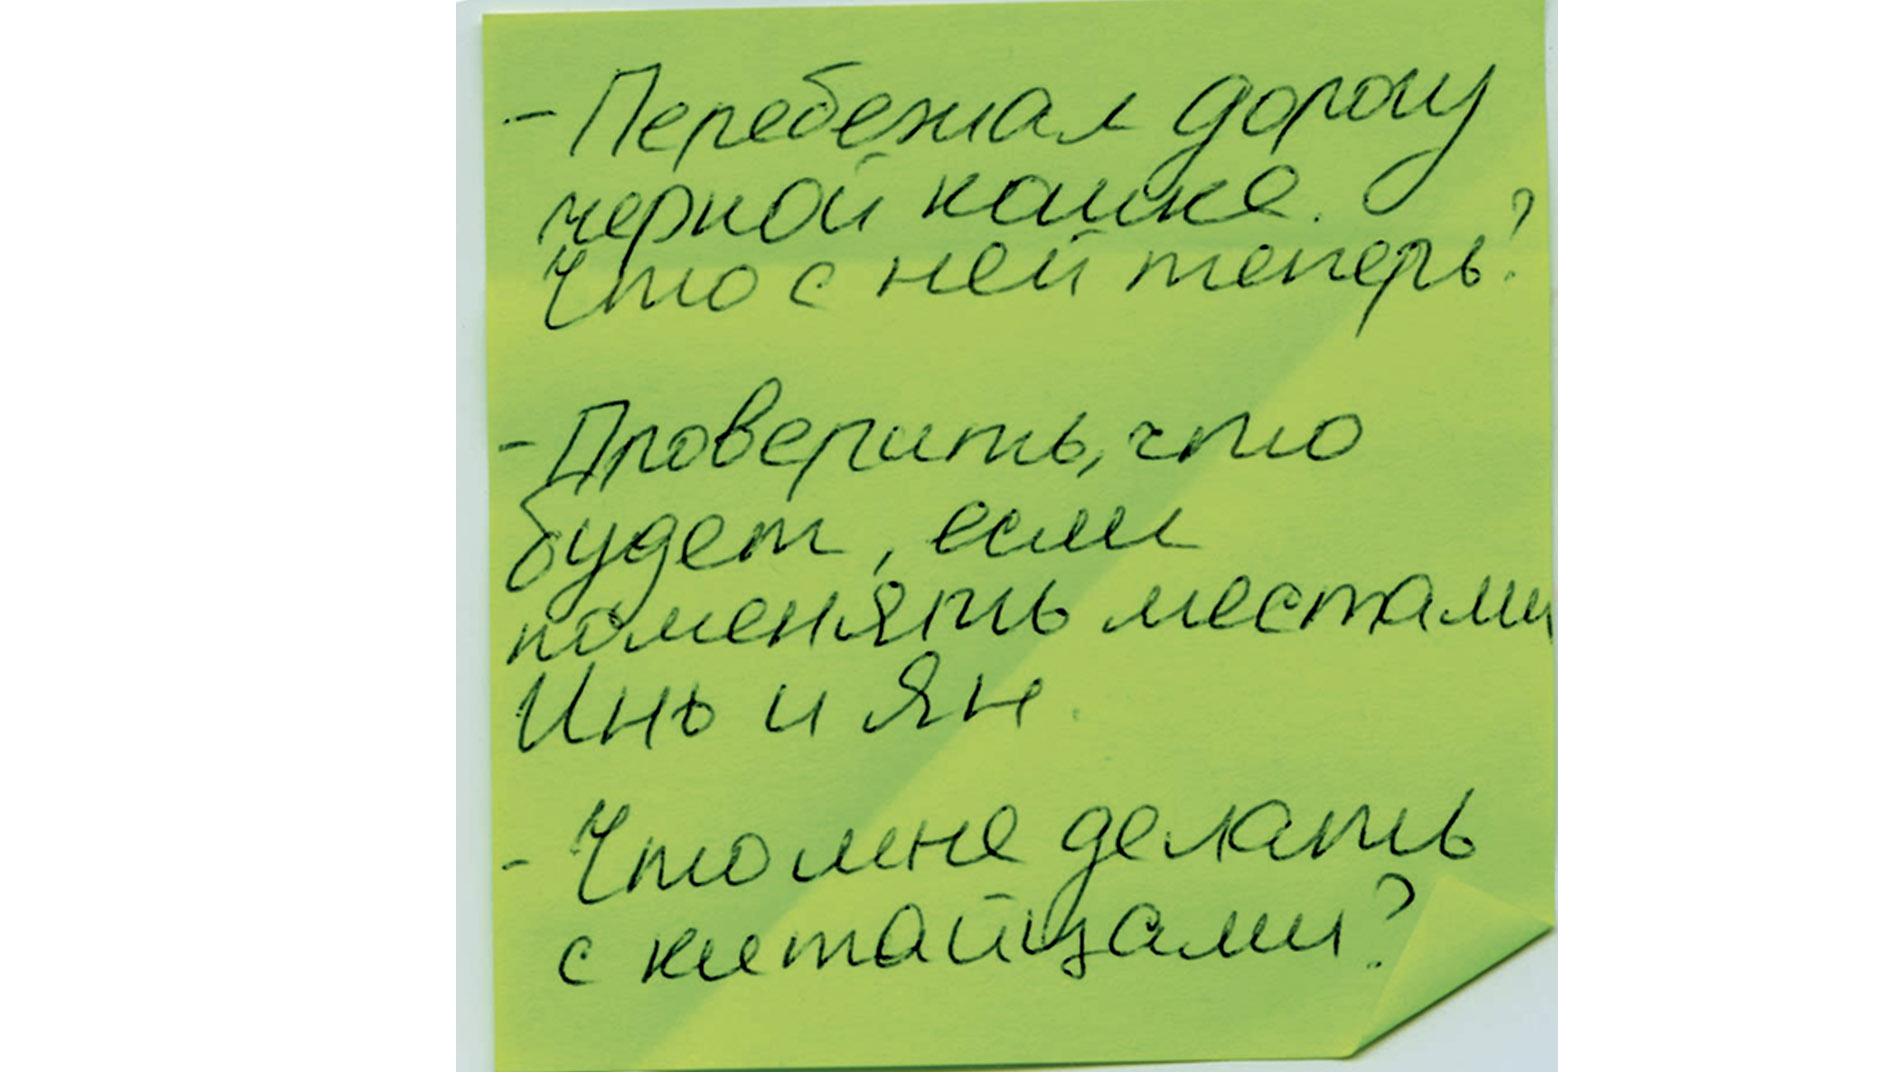 - Перебежал дорогу
черной кошке.
Что с ней теперь?
- Проверить, что
будет, если
поменять местами
Инь и Ян.
- Что мне делать
с китайцами?